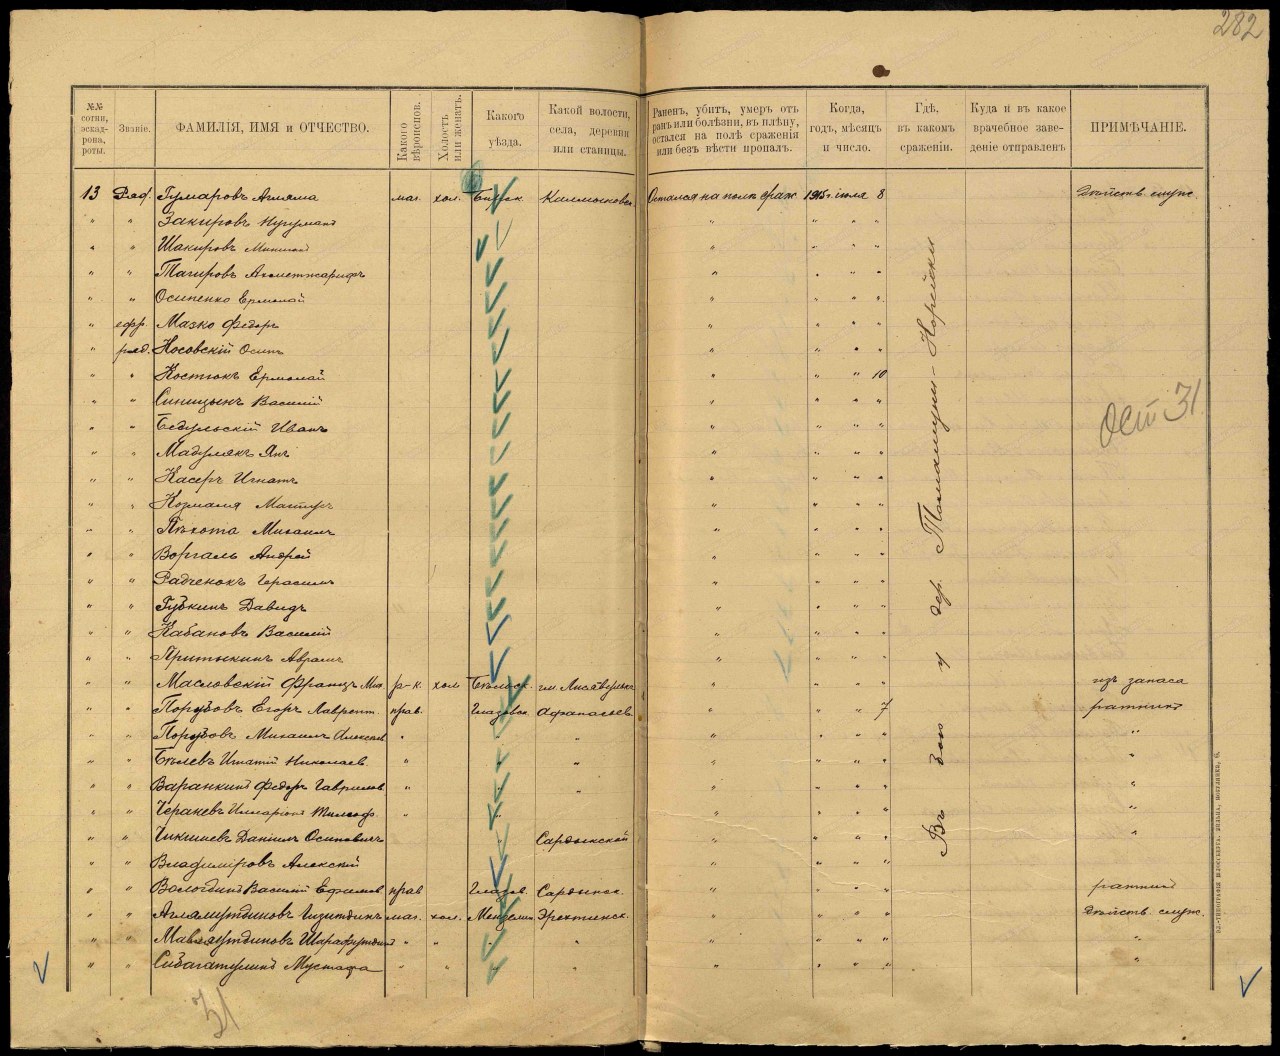 282
№№ сотни, эскадрона, роты.
Званіе.
ФАМИЛІЯ, ИМЯ и ОТЧЕСТВО.
Какого вѣроисповѣд.
Холостъ или женатъ.
Какого уѣзда.
Какой волости, села, деревни или станицы.
Раненъ, убитъ, умеръ отъ ранъ или болѣзни, въ плѣну, остался на полѣ сраженія или безъ вѣсти пропалъ.
Когда, годъ, мѣсяцъ и число.
Гдѣ, въ какомъ сраженіи.
Куда и въ какое врачебное заведеніе отправленъ
ПРИМѢЧАНІЕ.
13 Ряд. Гумаровъ маг. хол. Бирск. Остался на поле сраж. 1915 г. іюля 8 дѣйств. служ.
" " Закировъ " " " "
" " Шакировъ " " " "
" " Тагировъ Ахметжарифъ " " " "
" " Осипенко Ермолай " " " "
" ефр. Мазко Федоръ " " " "
" ряд. Носовскій Осипъ " " " "
" " Костюкъ Ермолай " " " 10
" " Синицынъ Василій " " " "
" " Бедульскій Иванъ " " " "
" " Мадулякъ Янъ " " " "
" " Касеръ Игнатъ " " " "
" " " " " "
" " Пѣхота Михаилъ " " " "
" " Воргаль Андрей " " " "
" " Радченокъ Герасимъ " " " "
" " Губкинъ Давидъ " " " "
" " Кабановъ Василій " " " "
" " Притыкинъ Аврамъ " " " "
" " Масловскій Францъ р-к. хол " " " " изъ запаса
" " Порубовъ Егоръ Лаврент. прав. Глазовск. Афанасьев. " " " 7 ратникъ
" " Порубовъ Михаилъ Алексѣев " " " " " " "
" " Бѣлевъ Игнатій Николаев " " " " " " "
" " Варанкинъ Федоръ Гаврилов " " " " " " "
" " Иларіонъ " " " " " "
" " Даніилъ Осиповичъ Сардыкской " " " " "
" " Владиміровъ Алексѣй " " " "
" " Вологдинъ Василій Ефимов прав Глазов. Сардыкск. " " " " ратник
" " Агламутдиновъ Гизитдинъ маг. хол. Мензелин. " " " " дѣйств. служ.
" " Мавлятутдиновъ Шарафутдинъ " " " " " " " " "
" " Сибагатуллинъ Мустафа " " " " " " " " "
Въ бою у дер.
Ост 31
31